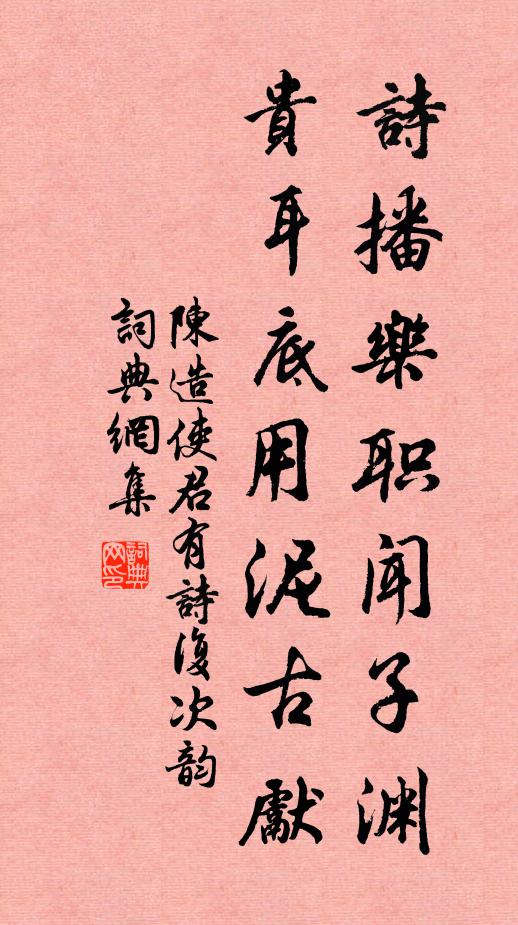 詩播樂职闻子渊
貴耳底用泥古獻
陳造使君有詩復次韵
詞典網集
詞典
网印